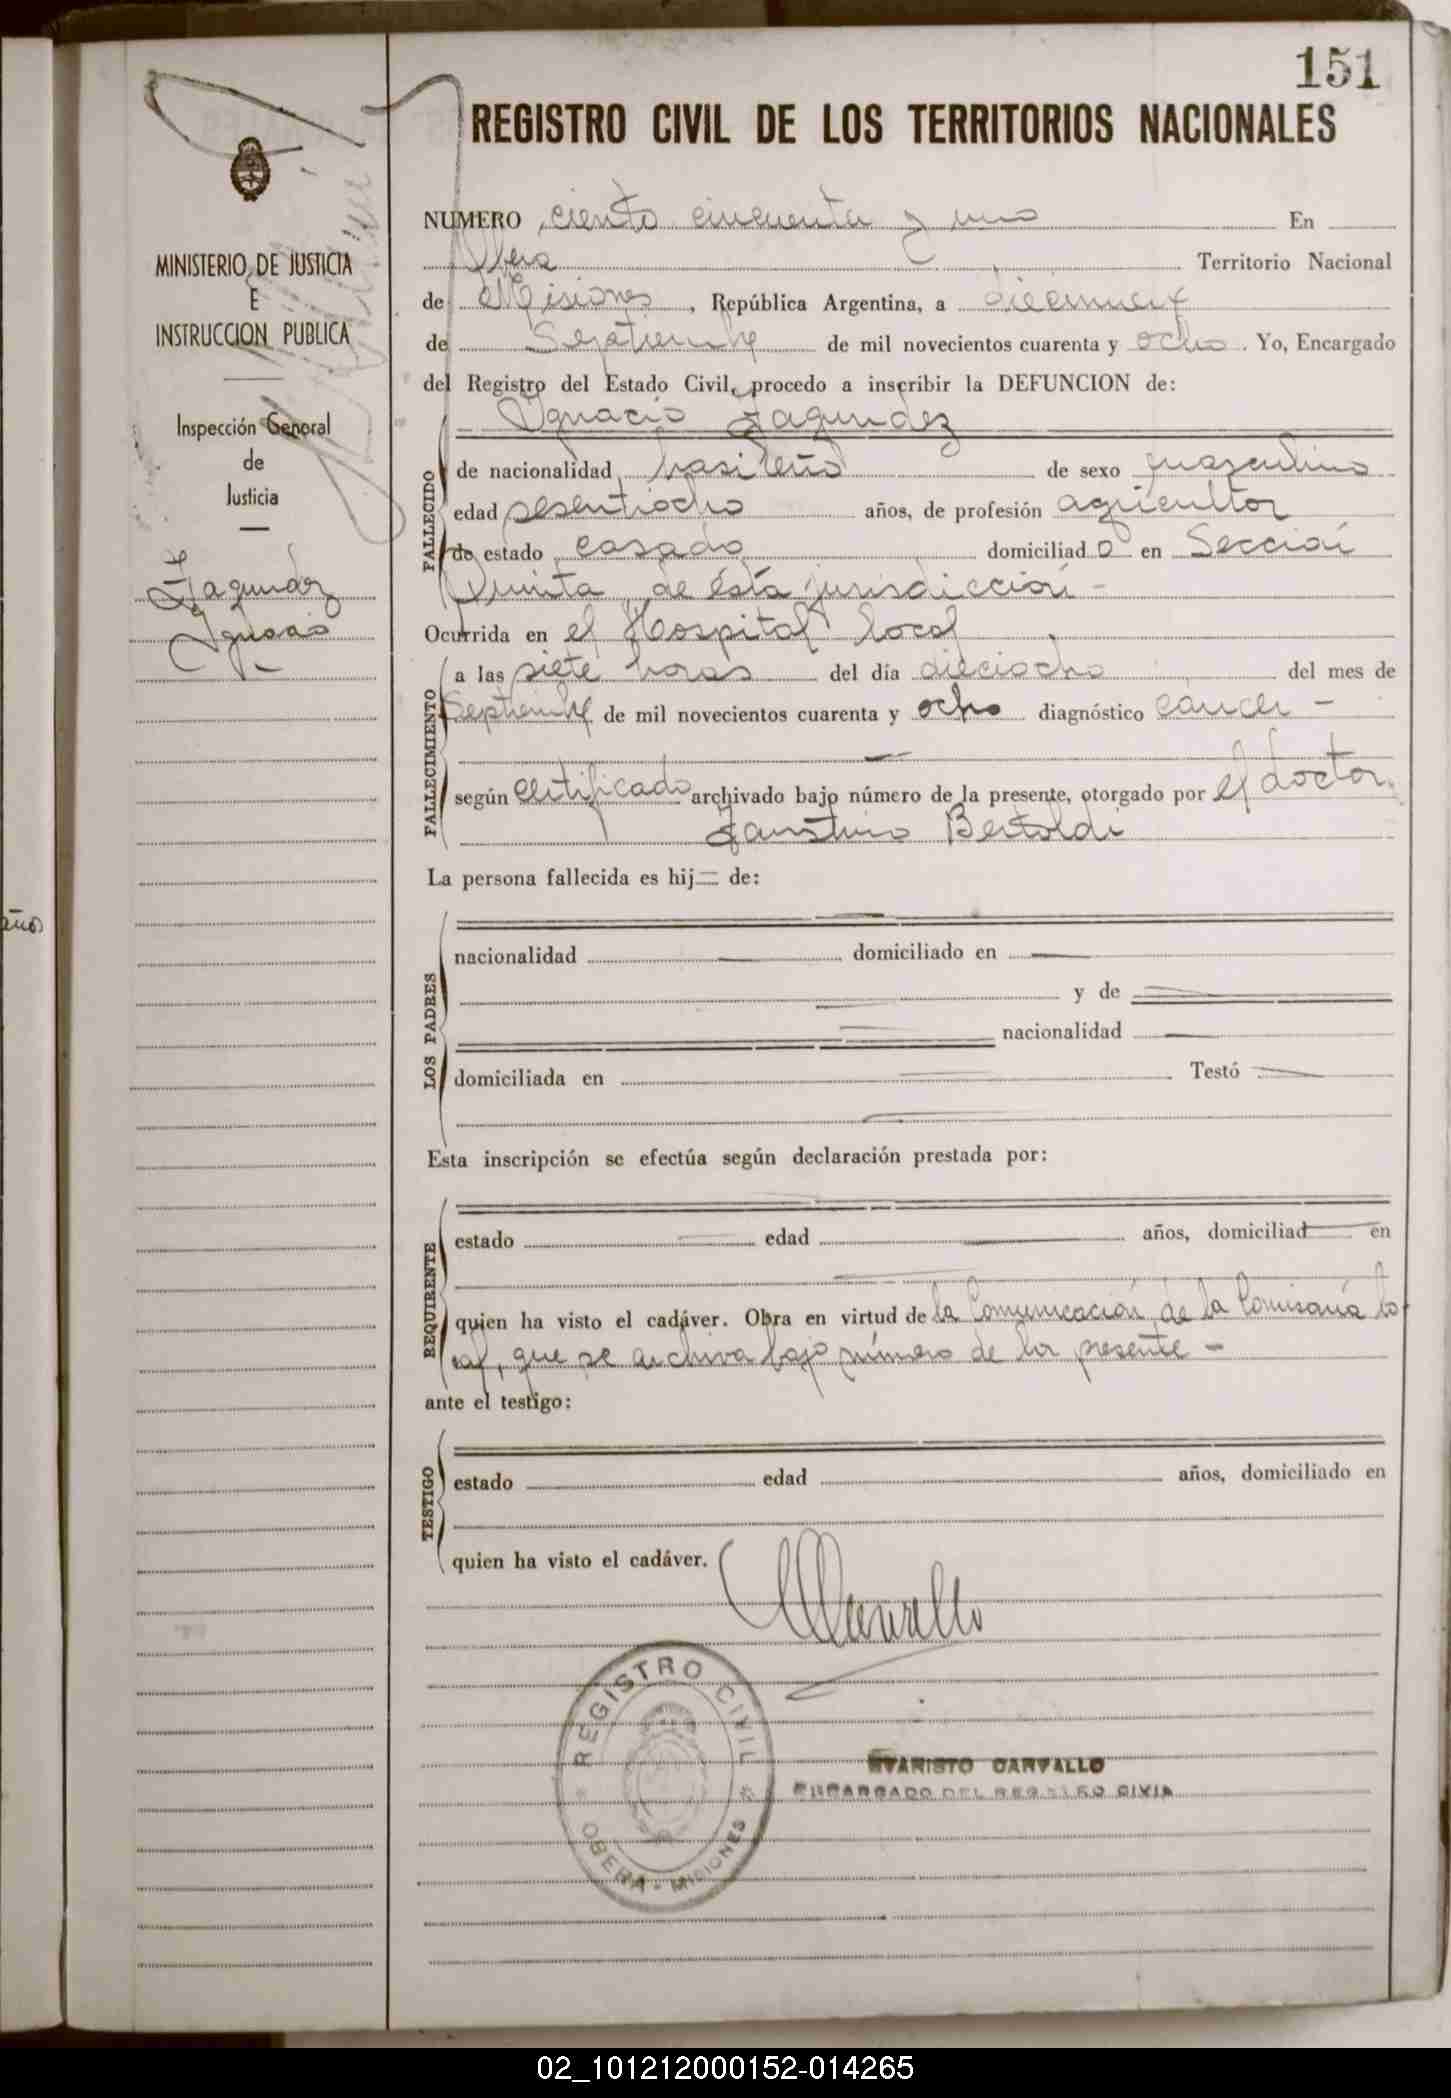 151
REGISTRO CIVIL DE LOS TERRITORIOS NACIONALES
MINISTERIO DE JUSTICIA
E
INSTRUCCION PUBLICA
Inspección General
de
Justicia
Fagundez
Ignacio
NUMERO ciento cincuenta y uno En
Oberá Territorio Nacional
de Misiones, República Argentina, a diecinueve
de Septiembre de mil novecientos cuarenta y ocho. Yo, Encargado
del Registro del Estado Civil, procedo a inscribir la DEFUNCION de:
Ignacio Fagundez
FALLECIDO
de nacionalidad brasileño de sexo masculino
edad sesentiocho años, de profesión agricultor
de estado casado domiciliado en Sección
Quinta de ésta jurisdicción -
Ocurrida en el Hospital local
FALLECIMIENTO
a las siete horas del día dieciocho del mes de
Septiembre de mil novecientos cuarenta y ocho diagnóstico cáncer -
según certificado archivado bajo número de la presente, otorgado por el doctor
Faustino Bertoldi
La persona fallecida es hij= de:
LOS PADRES
nacionalidad domiciliado en
y de
nacionalidad
domiciliada en Testó
Esta inscripción se efectúa según declaración prestada por:
REQUIRENTE
estado edad años, domiciliad en
quien ha visto el cadáver. Obra en virtud de la Comunicación de la Comisaría lo-
cal, que se archiva bajo número de la presente -
ante el testigo:
TESTIGO
estado edad años, domiciliado en
quien ha visto el cadáver.
REGISTRO CIVIL
OBERA - MISIONES
EVARISTO CARVALLO
ENCARGADO DEL REGISTRO CIVIL
02_101212000152-014265